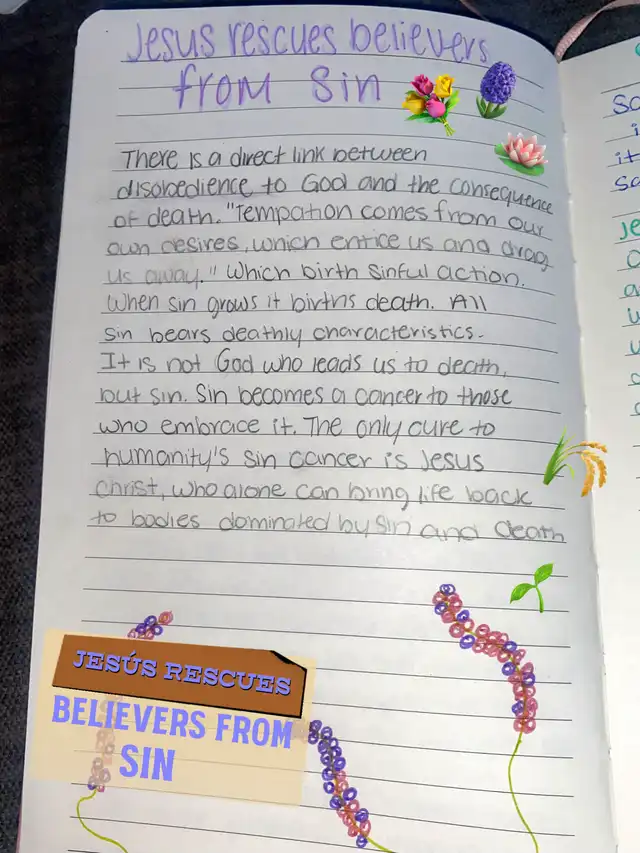 Jesus rescues believers
from Sin
There is a direct link between
disobedience to God and the consequence
of death. "Tempation comes from our
own desires, which entice us and drag
us away." Which birth sinful action.
When sin grows it births death. All
Sin bears deathly characteristics.
It is not God who leads us to death,
but sin. Sin becomes a cancer to those
who embrace it. The only cure to
humanity's sin cancer is Jesus
Christ, who alone can bring life back
to bodies dominated by sin and death
JESÚS RESCUES
BELIEVERS FROM
SIN
So
i
it
Je